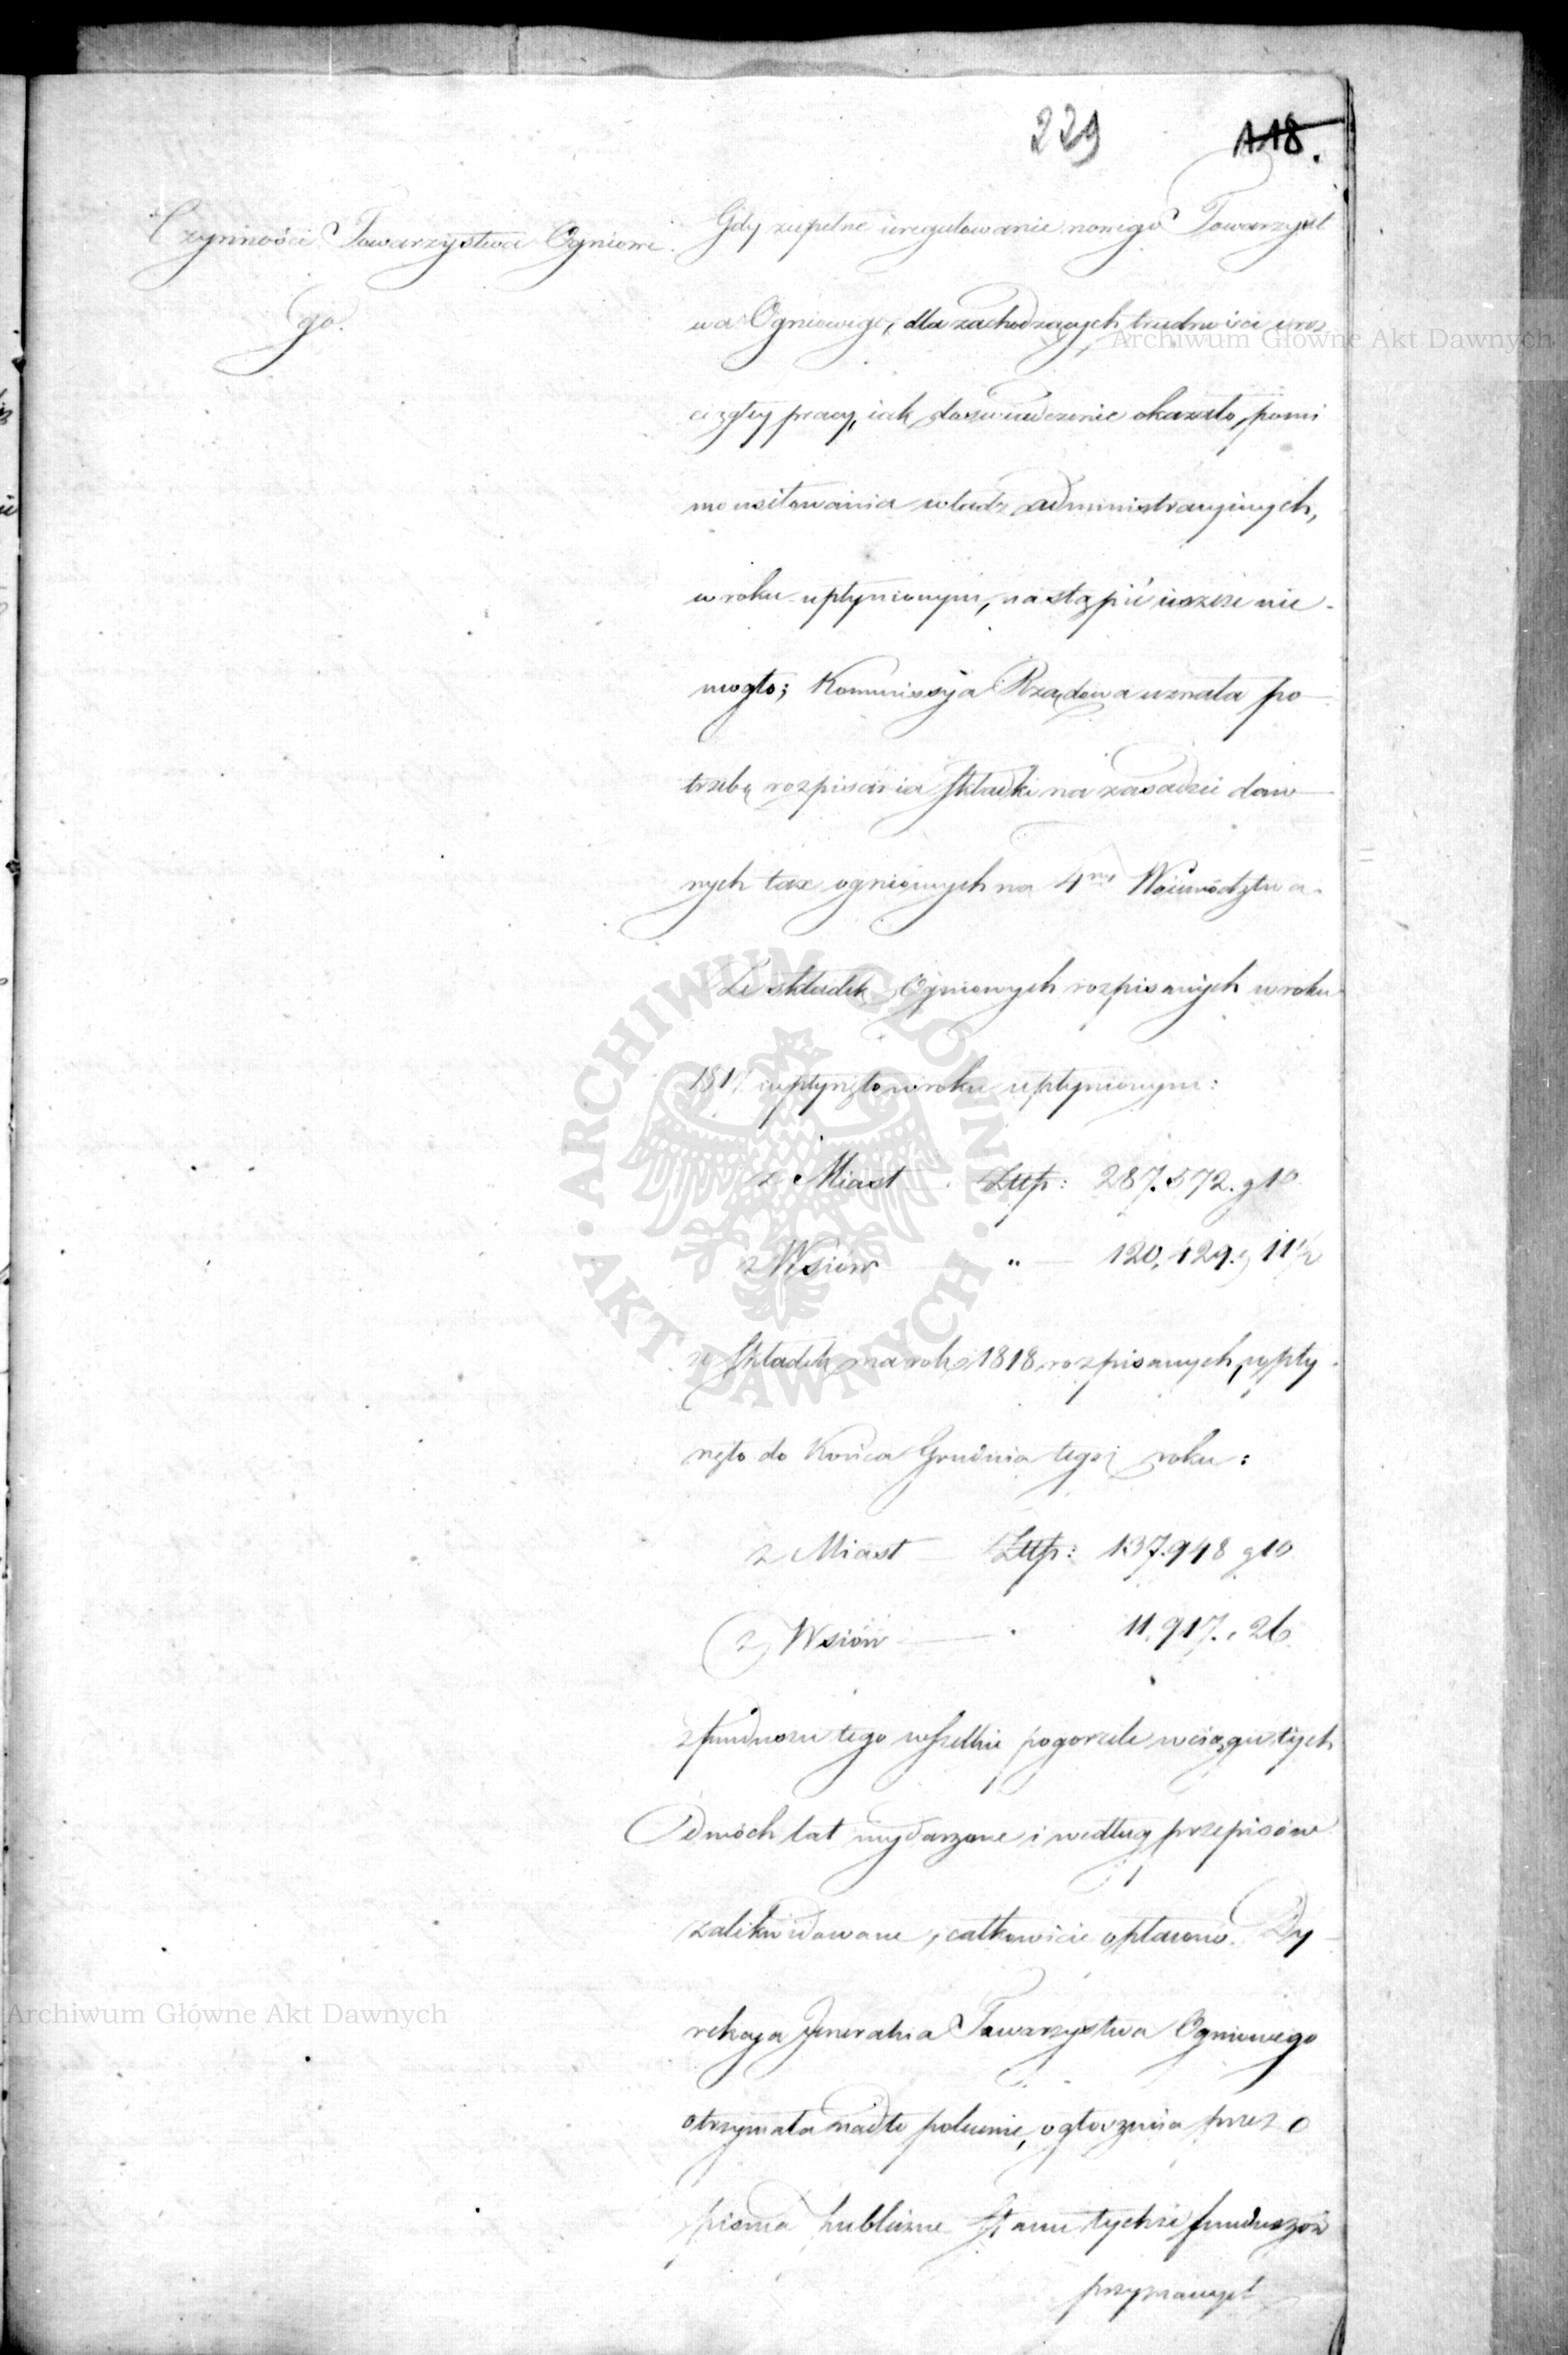 229
118.
Czynności Towarzystwa Ogniowe-
go.
Gdy zupełne uregulowanie nowego Towarzyst
wa Ogniowego, dla zachodzących trudności i roz
ciągłey pracy, iak doświadczenie okazało, pomi
mo usiłowania władz administracyinych,
w roku upłynionym, nastąpić ieszcze nie-
mogło; Kommissyja Rządowa uznała po-
trzebę rozpisania składki na zasadzie daw-
nych tax ogniowych na 4ry Woiewództwa.
Ze składek Ogniowych rozpisanych w roku
1817 wpłynęło w roku upłynionym:
z Miast Złtp: 287.572. g 10
z Wsiów " 120,429. g 11 1/2
z składek na rok 1818 rozpisanych, wpły-
nęło do Końca Grudnia tegoż roku:
z Miast Złtp: 137.948 g 10
z Wsiów 11.917. 26
z funduszu tego wszelkie pogorzele w ciągu tych
dwóch lat wydarzone i według przepisów
zalikwidowane, całkowicie opłacono. Dy-
rekcya Jeneralna Towarzystwa Ogniowego
otrzymała nadto polecenie, ogłoszenia przez
pisma publiczne stanu tychże funduszów
przyznanych
Archiwum Główne Akt Dawnych
Archiwum Główne Akt Dawnych
ARCHIWUM GŁÓWNE · AKT DAWNYCH ·